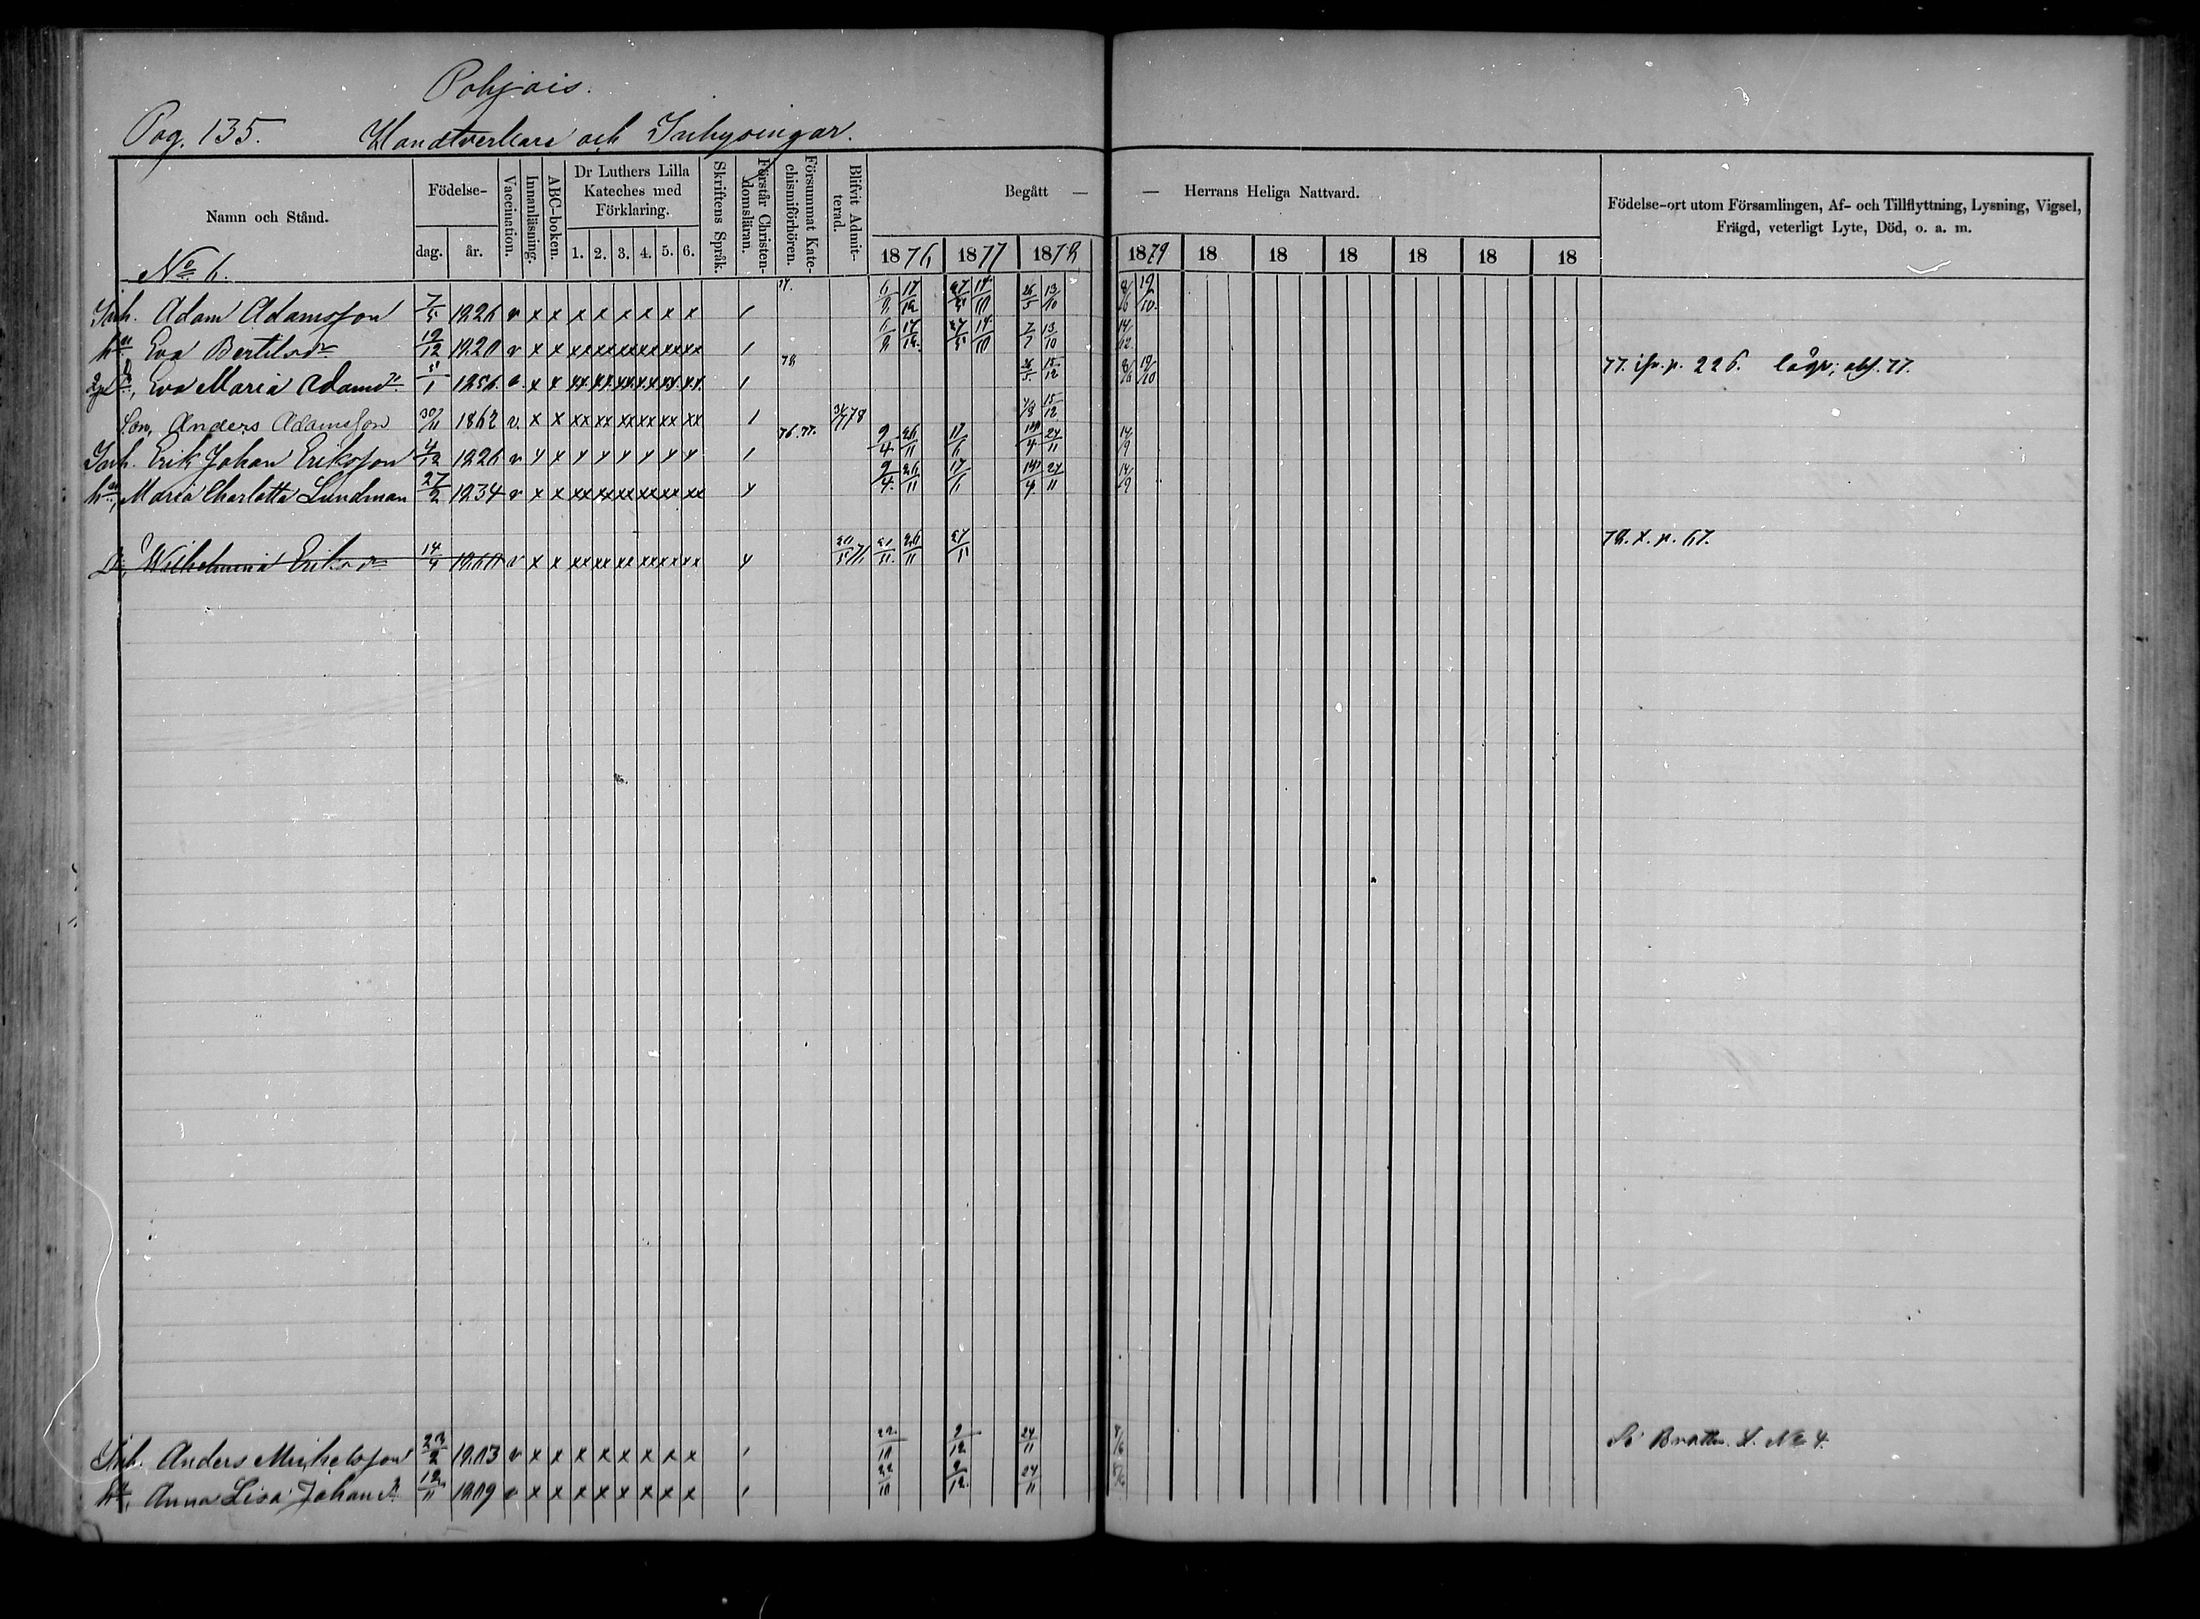 Pohjois.
Pag. 135. Handtverkare och Inhysingar.
Namn och Stånd. Födelse- dag. år. Vaccination. Innanläsning. ABC-boken. Dr Luthers Lilla Kateches med Förklaring. 1. 2. 3. 4. 5. 6. Skriftens Språk. Förstår Christendomsläran. Försummat Katechismiförhören. Blifvit Admitterad. Begått — — Herrans Heliga Nattvard. 1876 1877 1878 1879 18 18 18 18 18 18 Födelse-ort utom Församlingen, Af- och Tillflyttning, Lysning, Vigsel, Frägd, veterligt Lyte, Död, o. a. m.
No 6.
Inh. Adam Adamsson 7/5 1826 v x x x x x x x x 6/8 17/12 27/5 14/10 26/5 13/10 8/6 19/10
hu Eva Bertilsdr 19/12 1820 v x x xx xx xx xx xx xx 6/8 17/12 27/5 14/10 7/7 13/10
Eva Maria Adamsdr 5/1 1856 v x x xx xx xx xx xx xx 78 26/5 15/12 8/6 19/10 77. ifr. p. 226. lägr; abs. 77.
Son, Anders Adamsson 30/11 1862 v x x xx xx xx xx xx xx 78 15/12
Inh. Erik Johan Eriksson 4/12 1826 v x x x x x x x x 76. 77. 9/4 26/11 17/6 24/11 14/9
hu, Maria Charlotta Lundman 27/2 1834 v x x xx xx xx xx xx xx 9/4 26/11 24/11 14/9
Dr, Wilhelmina Eriksdr 14/4 1860 v x x xx xx xx xx xx xx 26/11 78. x. p. 67.
Inh. Anders Michelsson 23/2 1803 v x x x x x x x x 22/10 2/12 24/11 8/6 No 4.
hu, Anna Lisa Johansdr 12/11 1809 v x x x x x x x x 22/10 2/12 24/11 8/6